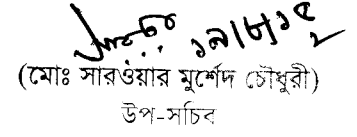 ১৯/৮/১৫
(মোঃ সারওয়ার মুর্শেদ চৌধুরী)
উপ-সচিব